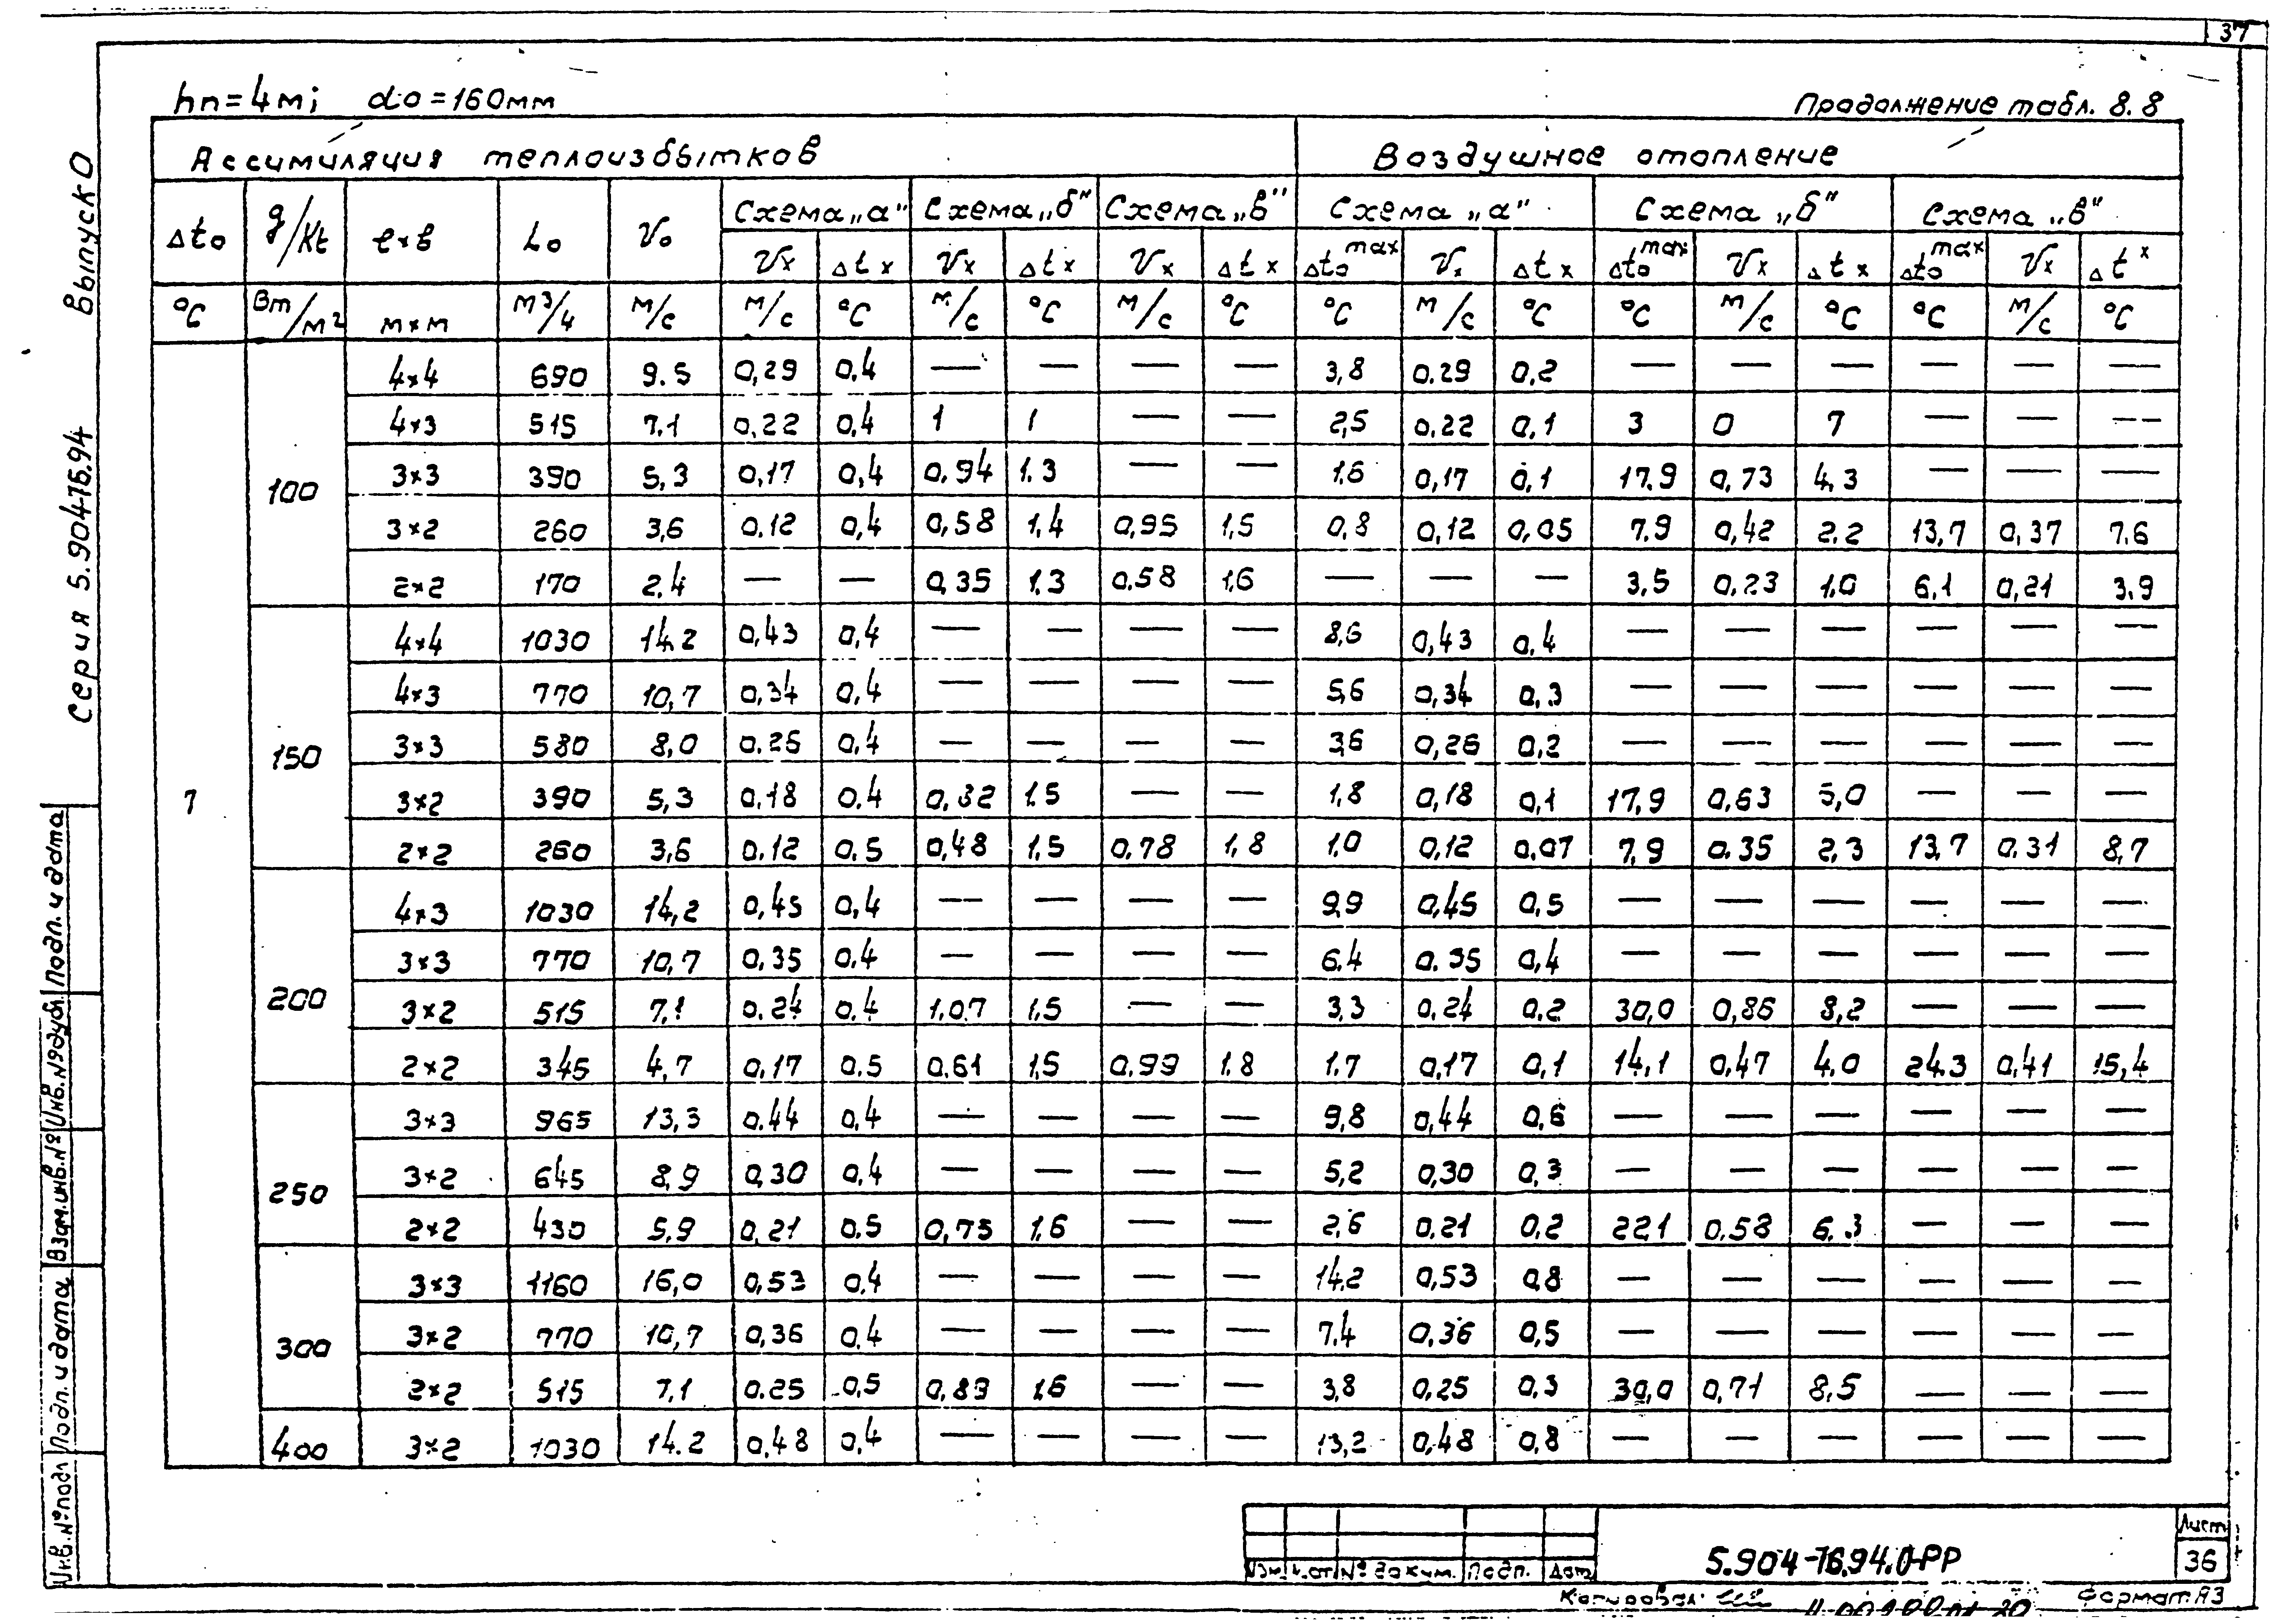 37
hп=4м; do=160мм
Продолжение табл. 8.8
Ассимиляция теплоизбытков Воздушное отопление
Δto g/Kt ℓ×в Lo Vo Схема „а" Схема „б" Схема „в" Схема „а" Схема „б" Схема „в"
Vx Δtx Vx Δtx Vx Δtx Δto max Vx Δtx Δto max Vx Δtx Δto max Vx Δtx
°С Вт/м² м×м м³/ч м/с м/с °С м/с °С м/с °С °С м/с °С °С м/с °С °С м/с °С
7
100
4×4 690 9.5 0,29 0,4 — — — — 3,8 0.29 0,2 — — — — — —
4×3 515 7.1 0,22 0,4 1 1 — — 2,5 0.22 0,1 3 0 7 — — —
3×3 390 5,3 0,17 0,4 0,94 1.3 — — 1,6 0,17 0,1 17.9 0,73 4.3 — — —
3×2 260 3,6 0.12 0,4 0,58 1,4 0,95 1,5 0,8 0,12 0,05 7.9 0,42 2.2 13,7 0,37 7.6
2×2 170 2.4 — — 0,35 1.3 0,58 1,6 — — — 3,5 0,23 1,0 6,1 0,21 3,9
150
4×4 1030 14.2 0,43 0,4 — — — — 8,6 0,43 0,4 — — — — — —
4×3 770 10,7 0,34 0,4 — — — — 5,6 0,34 0,3 — — — — — —
3×3 580 8,0 0.26 0,4 — — — — 3,6 0,26 0,2 — — — — — —
3×2 390 5,3 0,18 0.4 0,82 1,5 — — 1,8 0,18 0,1 17,9 0,63 5,0 — — —
2×2 260 3,6 0.12 0.5 0,48 1,5 0,78 1,8 1,0 0,12 0,07 7,9 0.35 2,3 13,7 0.31 8,7
200
4×3 1030 14,2 0,45 0,4 — — — — 9,9 0,45 0,5 — — — — — —
3×3 770 10,7 0,35 0.4 — — — — 6.4 0.35 0,4 — — — — — —
3×2 515 7,1 0.24 0,4 1,07 1,5 — — 3,3 0,24 0,2 30,0 0,86 8,2 — — —
2×2 345 4,7 0,17 0.5 0.61 1,5 0,99 1.8 1.7 0,17 0,1 14,1 0,47 4.0 24.3 0,41 15,4
250
3×3 965 13,3 0.44 0,4 — — — — 9,8 0,44 0,6 — — — — — —
3×2 645 8,9 0,30 0,4 — — — — 5,2 0,30 0,3 — — — — — —
2×2 430 5,9 0,21 0,5 0,73 1,6 — — 2,6 0,21 0,2 22,1 0,58 6.3 — — —
300
3×3 1160 16,0 0,53 0,4 — — — — 14,2 0,53 0,8 — — — — — —
3×2 770 10,7 0,36 0,4 — — — — 7,4 0,36 0,5 — — — — — —
2×2 515 7,1 0.25 0,5 0,89 1,6 — — 3,8 0,25 0,3 30,0 0,71 8,5 — — —
400
3×2 1030 14.2 0,48 0,4 — — — — 13,2 0,48 0,8 — — — — — —
Серия 5.904-76.94 Выпуск 0
Инв.№подл Подп. и дата Взам.инв.№ Инв.№дубл. Подп. и дата
Изм. К.от №докум. Подп. Дат
5.904-76.94.0-РР
Лист
36
Копировал:
Формат А3